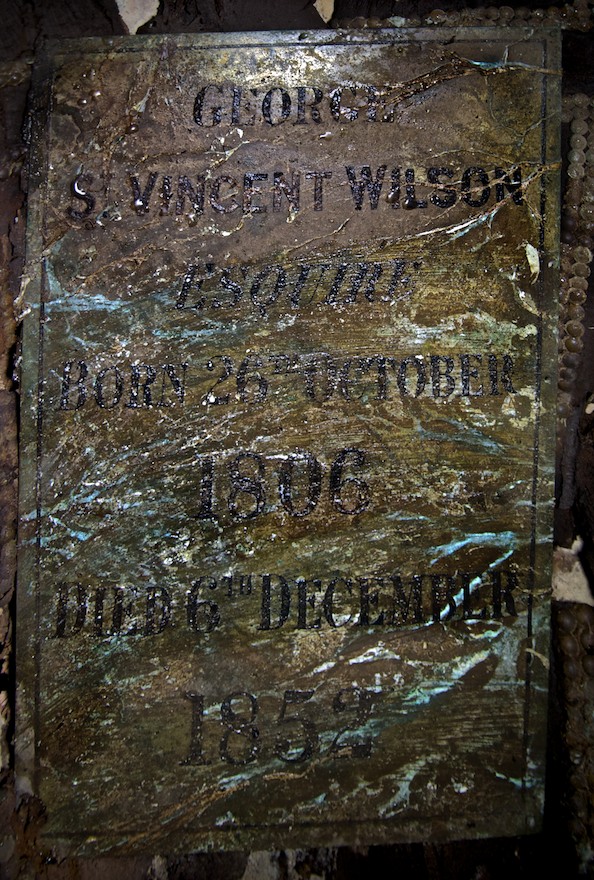 GEORGE
S. VINCENT WILSON
ESQUIRE
BORN 26TH OCTOBER
1806
DIED 6TH DECEMBER
1852